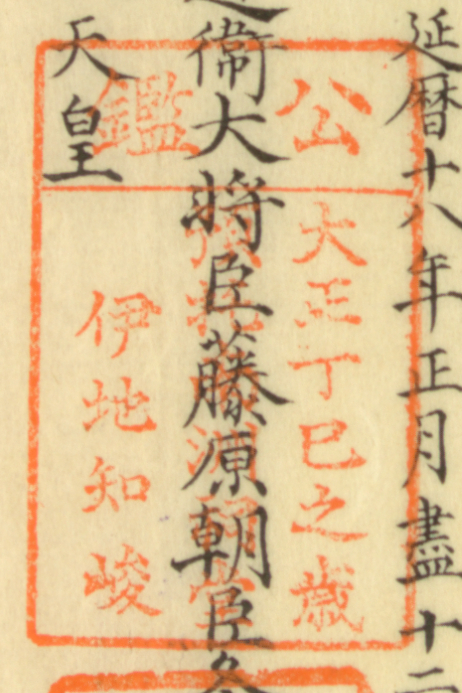 延曆十八年正月盡十二
衞大將臣藤原朝臣
天皇
公鑑
大正丁巳之歳
伊地知峻